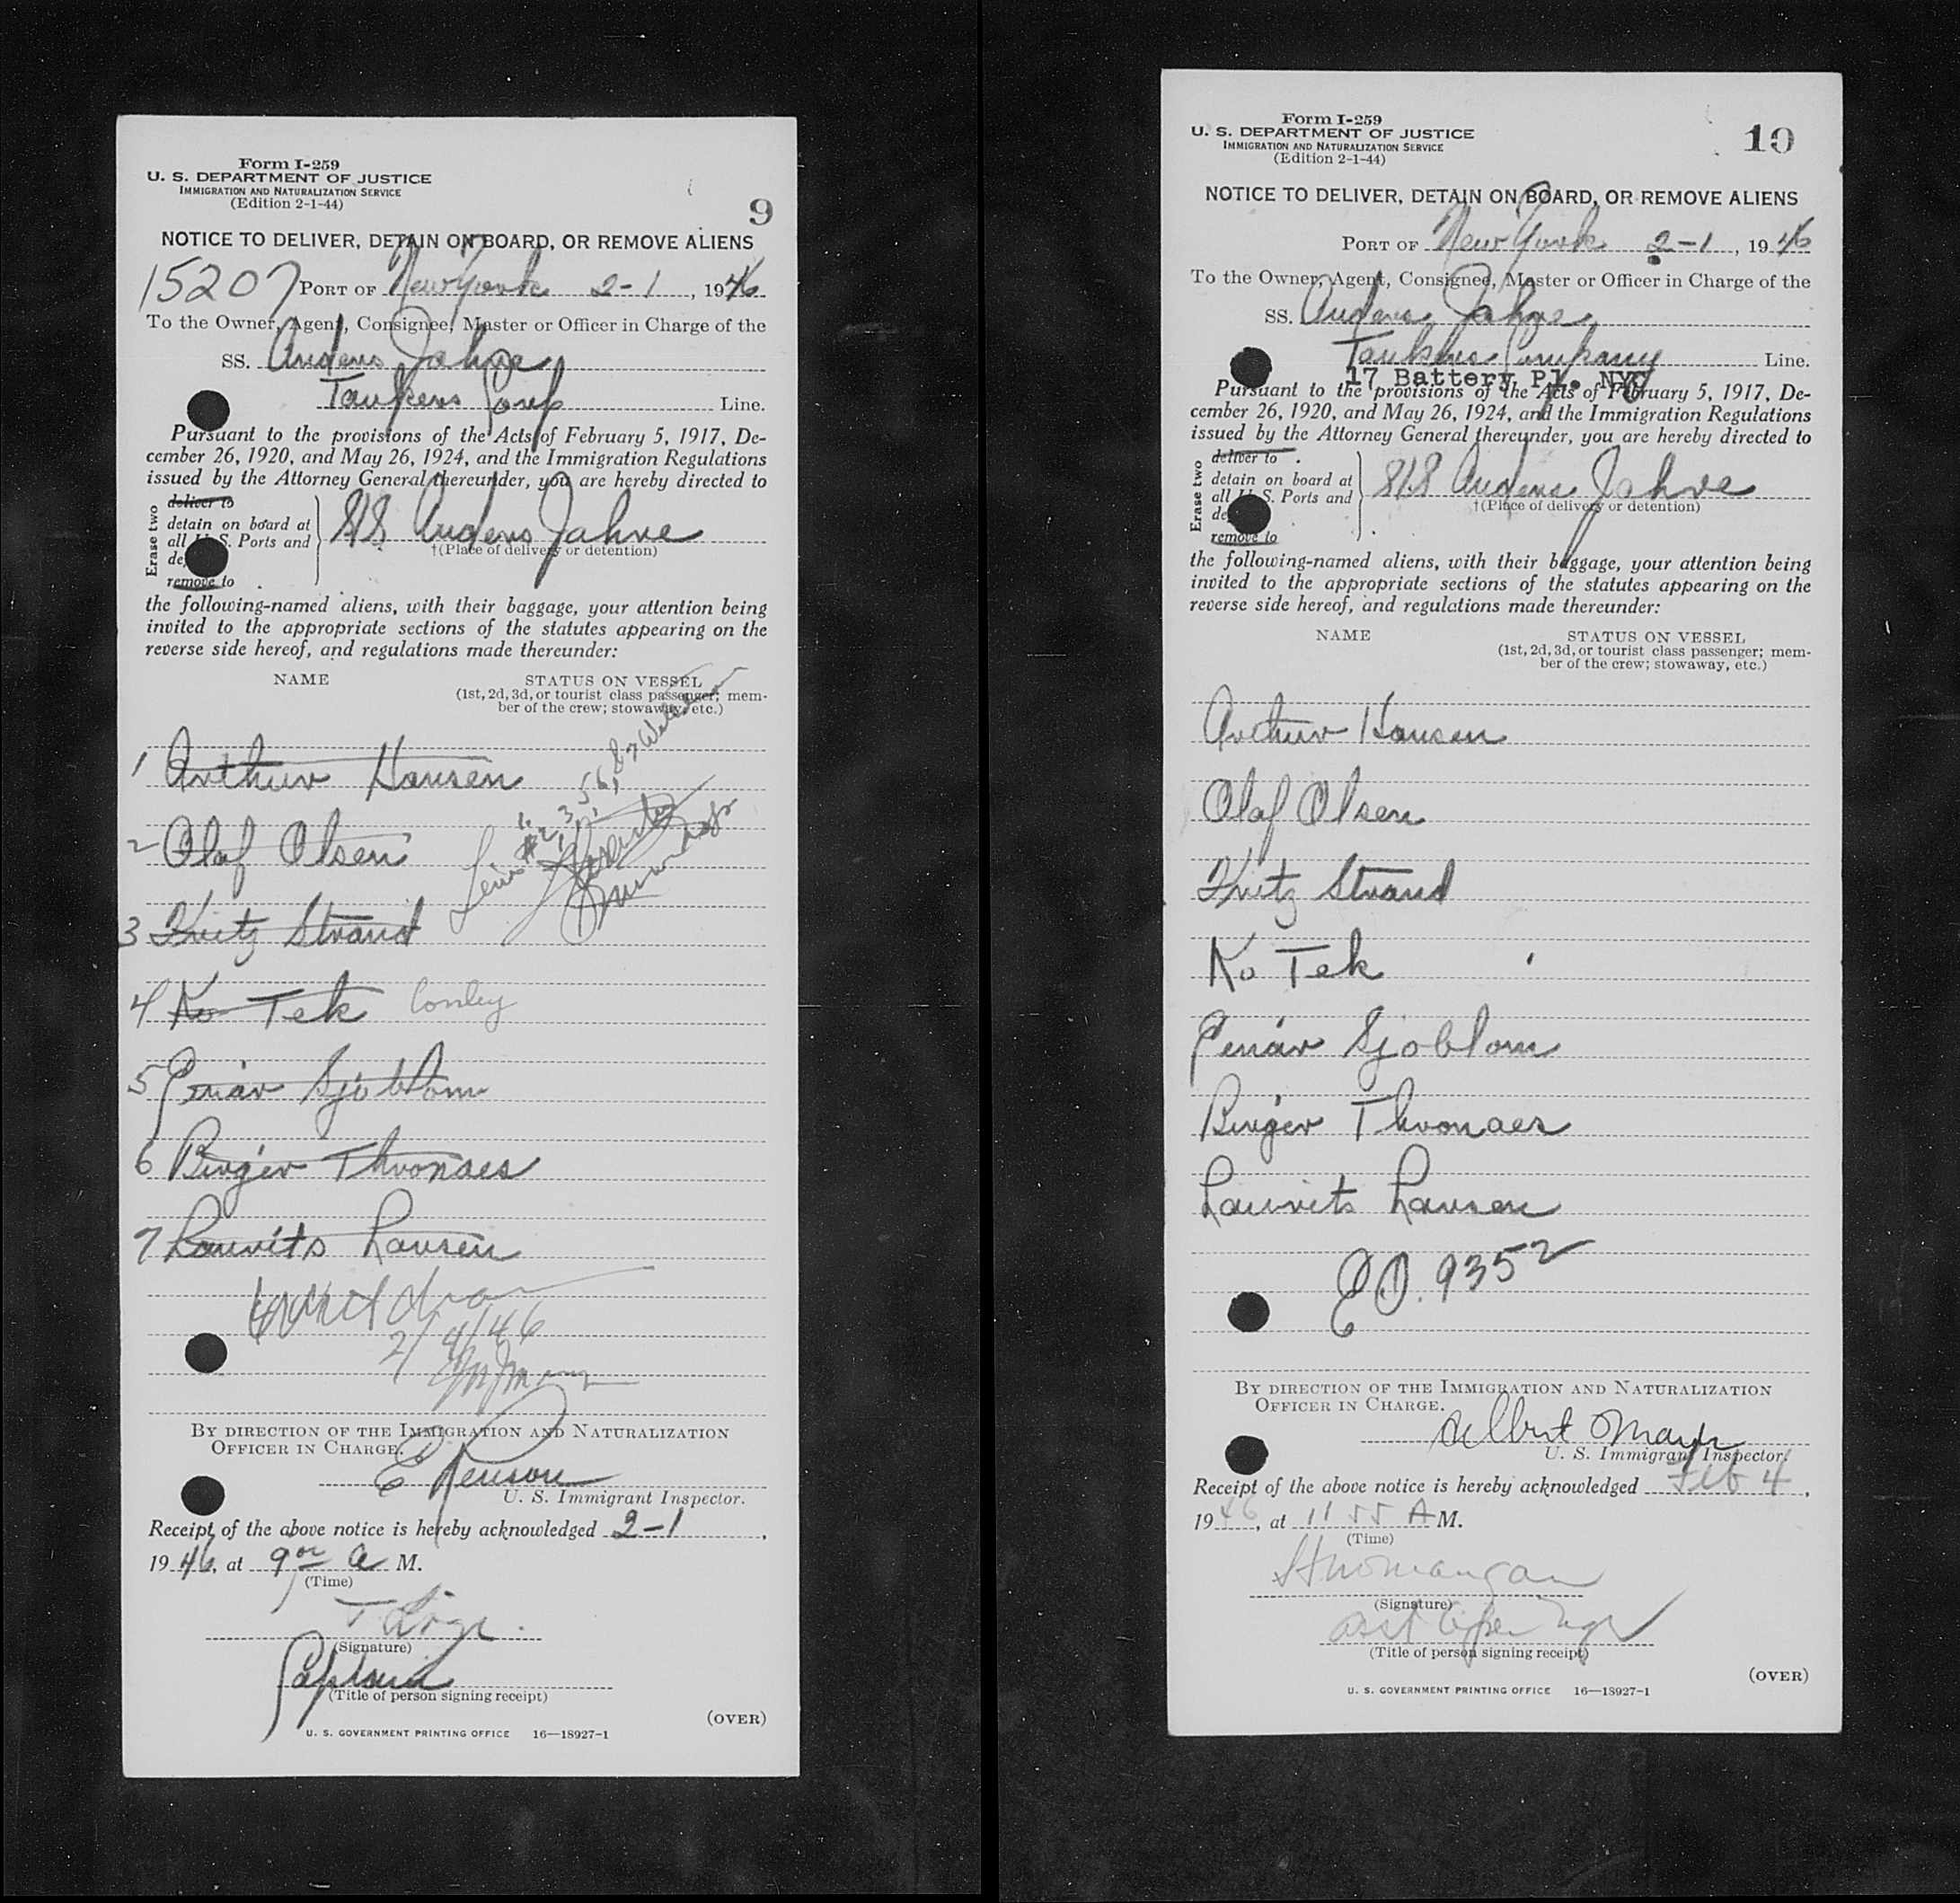 Form I-259
U. S. DEPARTMENT OF JUSTICE
IMMIGRATION AND NATURALIZATION SERVICE
(Edition 2-1-44)
9
NOTICE TO DELIVER, DETAIN ON BOARD, OR REMOVE ALIENS
15207 PORT OF New York 2-1, 1946
To the Owner, Agent, Consignee, Master or Officer in Charge of the
SS. Anders Jahre
Tankers Corp Line.
Pursuant to the provisions of the Acts of February 5, 1917, De-
cember 26, 1920, and May 26, 1924, and the Immigration Regulations
issued by the Attorney General thereunder, you are hereby directed to
Erase two
deliver to
detain on board at
all U. S. Ports and
S/S Anders Jahre
†(Place of delivery or detention)
remove to
the following-named aliens, with their baggage, your attention being
invited to the appropriate sections of the statutes appearing on the
reverse side hereof, and regulations made thereunder:
NAME STATUS ON VESSEL
(1st, 2d, 3d, or tourist class passenger; mem-
ber of the crew; stowaway, etc.)
1 Arthur Hansen
2 Olaf Olsen
3 Fritz Strand
4 Ko Tek
5 Sjoblom
6 Birger Thronaes
7 Lauvits Lausen
2/4/46
BY DIRECTION OF THE IMMIGRATION AND NATURALIZATION
OFFICER IN CHARGE.
E
U. S. Immigrant Inspector.
Receipt of the above notice is hereby acknowledged 2-1,
1946, at 9 00 a M.
(Time)
(Signature)
Captain
(Title of person signing receipt)
(OVER)
U. S. GOVERNMENT PRINTING OFFICE 16—18927-1
Form I-259
U. S. DEPARTMENT OF JUSTICE
IMMIGRATION AND NATURALIZATION SERVICE
(Edition 2-1-44)
10
NOTICE TO DELIVER, DETAIN ON BOARD, OR REMOVE ALIENS
PORT OF New York 2-1, 1946
To the Owner, Agent, Consignee, Master or Officer in Charge of the
SS. Anders Jahre
Tankers Company Line.
17 Battery Pl. NYC
Pursuant to the provisions of the Acts of February 5, 1917, De-
cember 26, 1920, and May 26, 1924, and the Immigration Regulations
issued by the Attorney General thereunder, you are hereby directed to
Erase two
deliver to
detain on board at
all U. S. Ports and
S/S Anders Jahre
†(Place of delivery or detention)
remove to
the following-named aliens, with their baggage, your attention being
invited to the appropriate sections of the statutes appearing on the
reverse side hereof, and regulations made thereunder:
NAME STATUS ON VESSEL
(1st, 2d, 3d, or tourist class passenger; mem-
ber of the crew; stowaway, etc.)
Arthur Hansen
Olaf Olsen
Fritz Strand
Ko Tek
Sjoblom
Birger Thronaes
Lauvits Lausen
EO. 9352
BY DIRECTION OF THE IMMIGRATION AND NATURALIZATION
OFFICER IN CHARGE.
Albert
U. S. Immigrant Inspector.
Receipt of the above notice is hereby acknowledged Feb 4,
1946, at 11 55 A M.
(Time)
(Signature)
Asst Oper Mgr
(Title of person signing receipt)
(OVER)
U. S. GOVERNMENT PRINTING OFFICE 16—18927-1